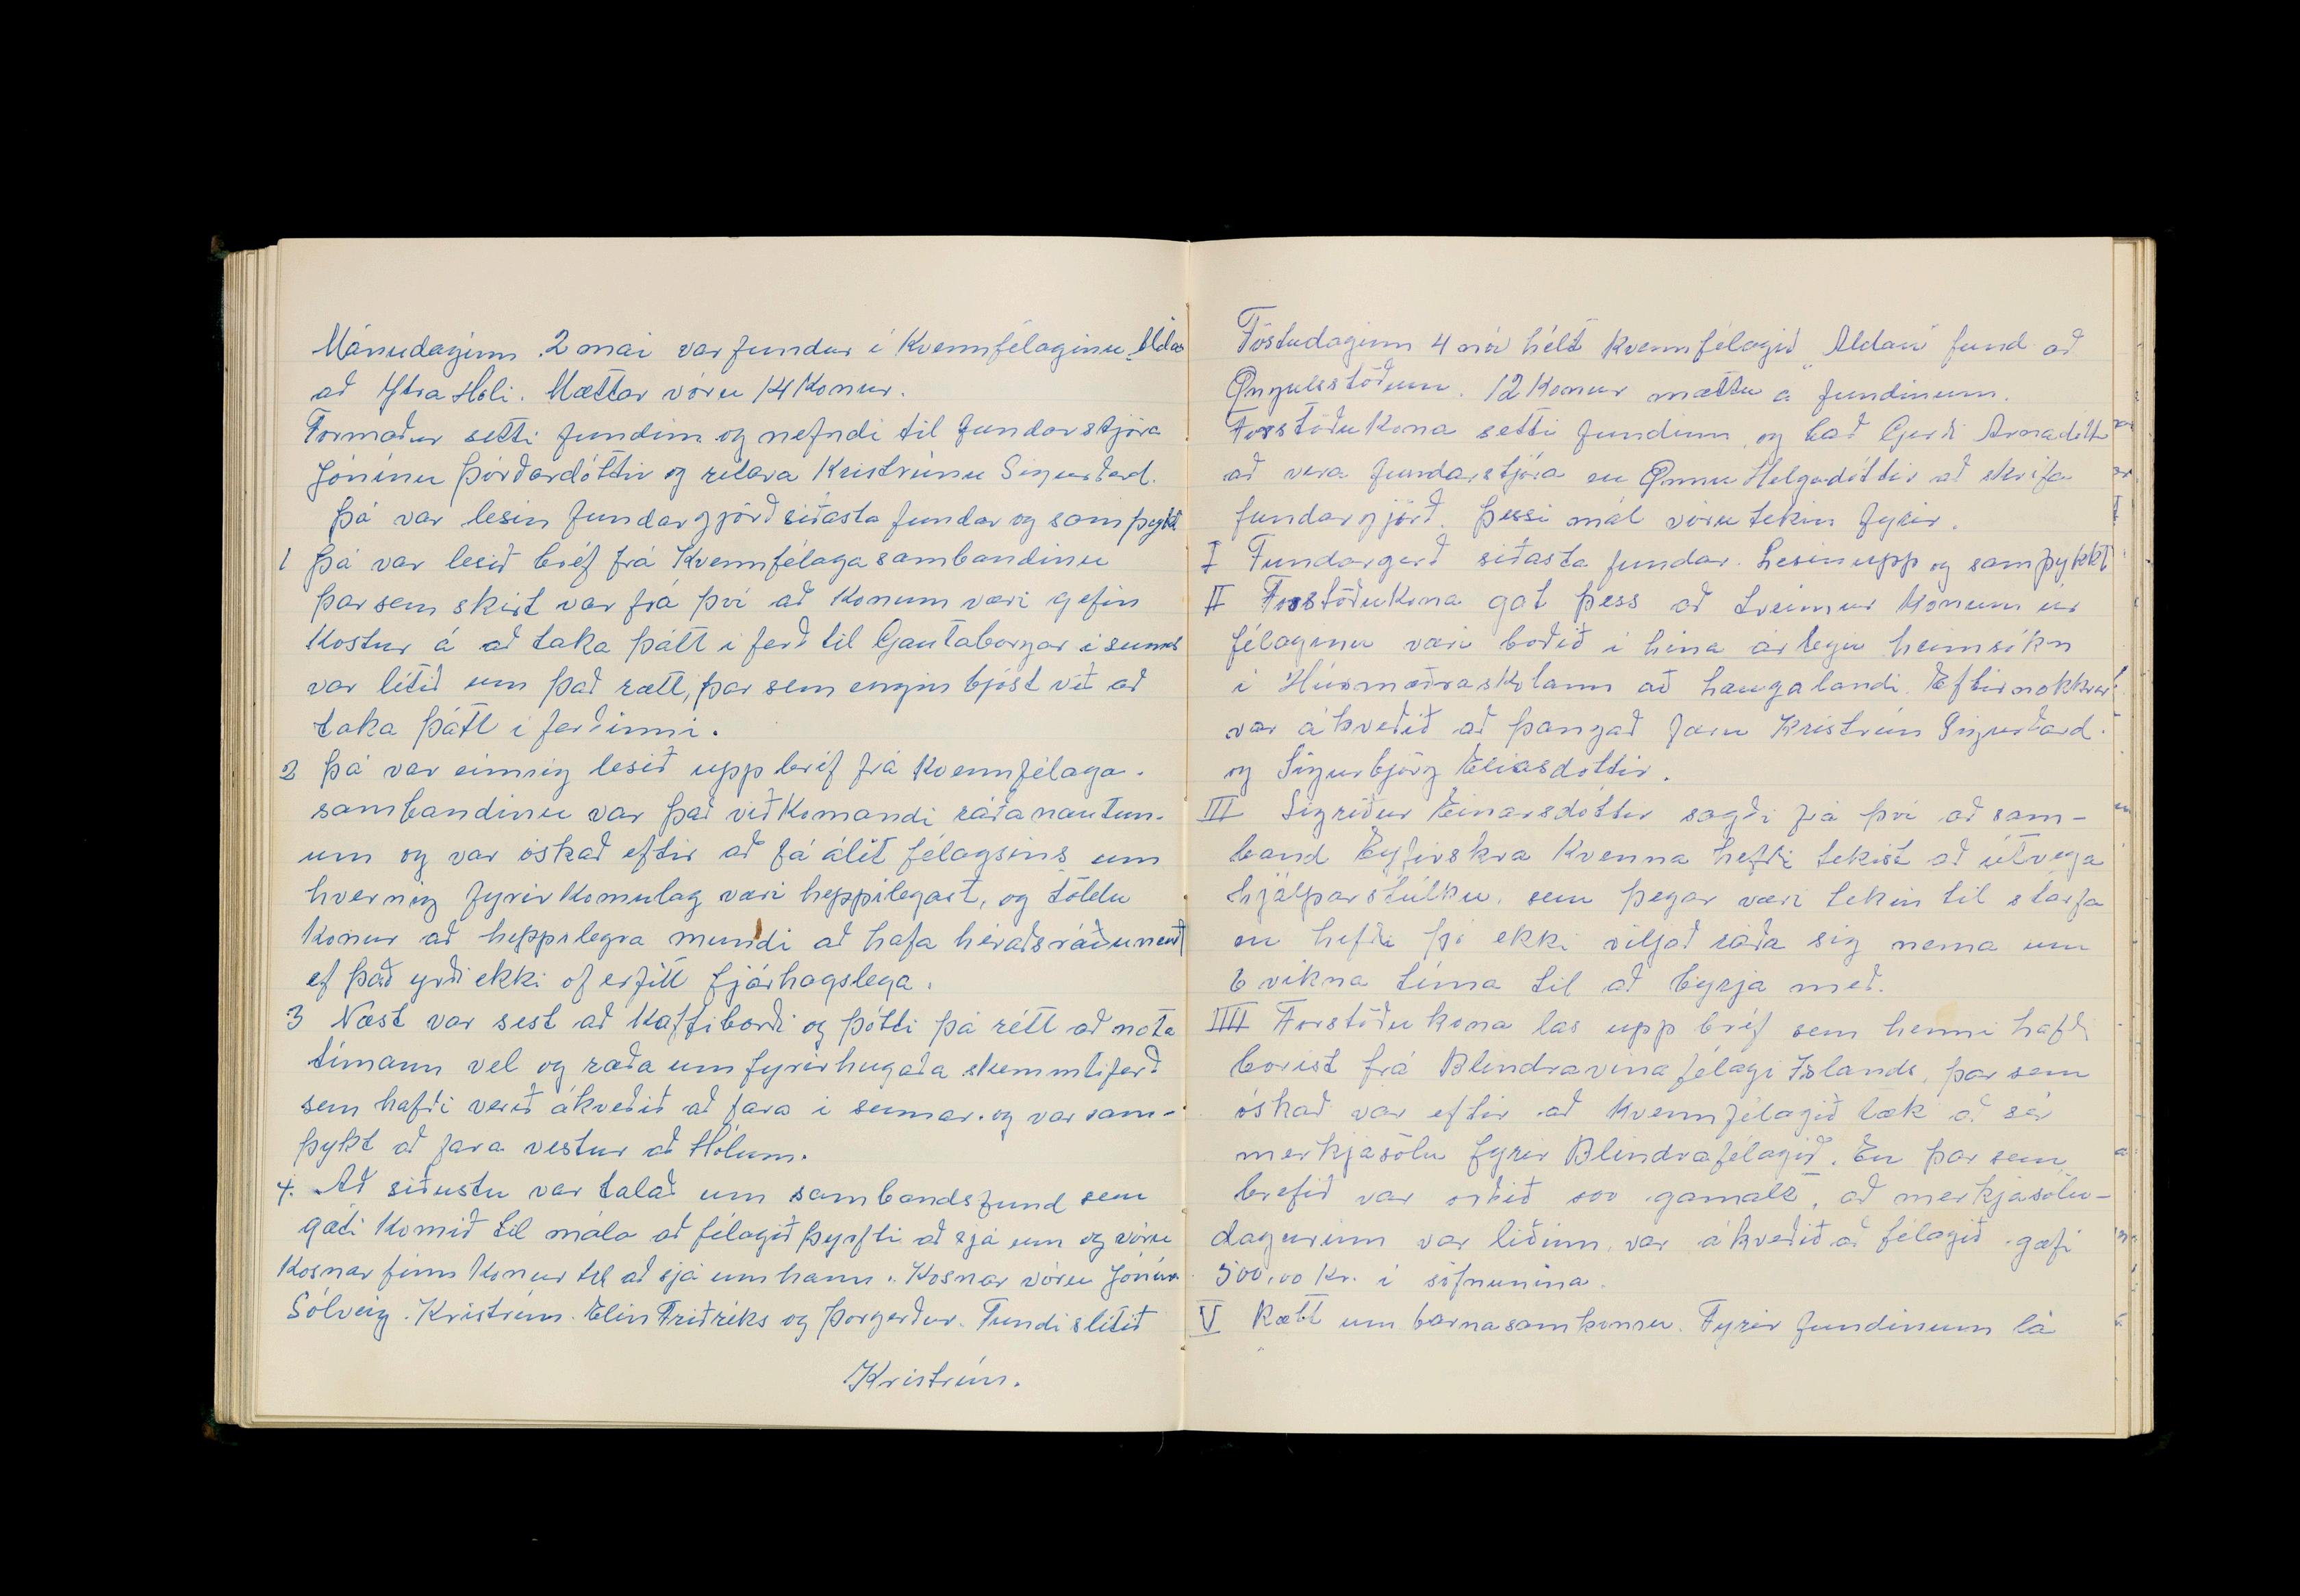 Mánudaginn 2 mai var fundur i Kvennfélaginu „Aldan
að Ytra Hóli. Mættar vóru 14 Konur.
Formaður setti fundinn og nefndi til fundarstjóra
Jónínu Þórðardóttir og ritara Kristrúnu Sigurðard.
Þá var lesin fundargjörð siðasta fundar og samþykt
1 Þá var lesið bréf frá Kvennfélagasambandinu
þar sem skírt var frá því að Konum væri gefin
Kostur á að taka þátt i ferð til Gautaborgar i sumar
var lítið um það rætt, þar sem engin bjóst við að
taka þátt i ferðinni.
2 Þá var einnig lesið upp bréf frá Kvennfélaga-
sambandinu var það viðkomandi ráðanautun-
um og var óskað eftir að fá álit félagsins um
hvernig fyrirkomulag væri heppilegast, og töldu
Konur að heppilegra mundi að hafa héraðsráðunaut
ef það yrði ekki of erfitt fjárhagslega.
3 Næst var sest að Kaffiborði og þótti þá rétt að nota
tímann vel og ræða um fyrirhugaða skemmtiferð
sem hafði verið ákveðið að fara i sumar. og var sam-
þykt að fara vestur að Hólum.
4. Að siðustu var talað um sambandsfund sem
gæti Komið til mála að félagið þyrfti að sjá um og vóru
Kosnar fimm Konur til að sjá um hann. Kosnar vóru Jónína
Sólveig. Kristrún. Elin Friðriks og Þorgerður. Fundi slitið
Kristrún.
Föstudaginn 4 nóv hélt Kvennfélagið „Aldan" fund að
Öngulsstöðum. 12 Konur mættu á fundinum.
Forstöðukona setti fundinn og bað Gerði Arnadóttir
að vera fundarstjóra en Önnu Helgadóttir að skrifa
fundargjörð. Þessi mál vóru tekin fyrir.
I Fundargerð siðasta fundar. Lesin upp og samþykkt
II Forstöðukona gat þess að tveimur Konum úr
félaginu væri boðið i hina árlegu heimsókn
i Húsmæðraskólann að Laugalandi. Eftir nokkrar
var ákveðið að þangað færu Kristrún Sigurðard.
og Sigurbjörg Eliasdóttir.
III Sigríður Einarsdóttir sagði frá því að sam-
band Eyfirskra Kvenna hefði tekist að útvega
hjálparstúlku. sem þegar væri tekin til starfa
en hefði þó ekki viljað ráða sig nema um
6 vikna tíma til að byrja með.
IIII Forstöðukona las upp bréf sem henni hafði
borist frá Blindravinafélagi Islands, þar sem
óskað var eftir að Kvennfélagið tæk að sér
merkjasölu fyrir Blindrafélagið. En þar sem
brefið var orðið svo gamalt, að merkjasölu-
dagurinn var liðinn, var ákveðið að félagið gæfi
500,00 Kr. i söfnunina.
V Rætt um barnasamkomu. Fyrir fundinum lá